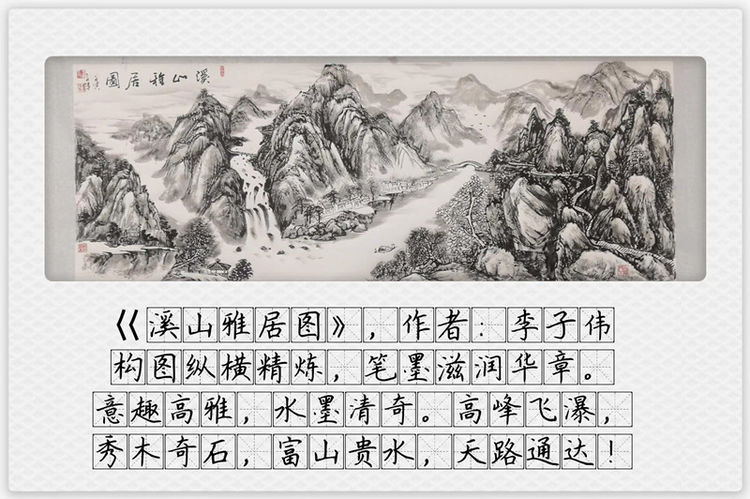 溪山雅居图
《溪山雅居图》，作者：李子伟
构图纵横精炼，笔墨滋润华章。
意趣高雅，水墨清奇。高峰飞瀑，
秀木奇石，富山贵水，天路通达！